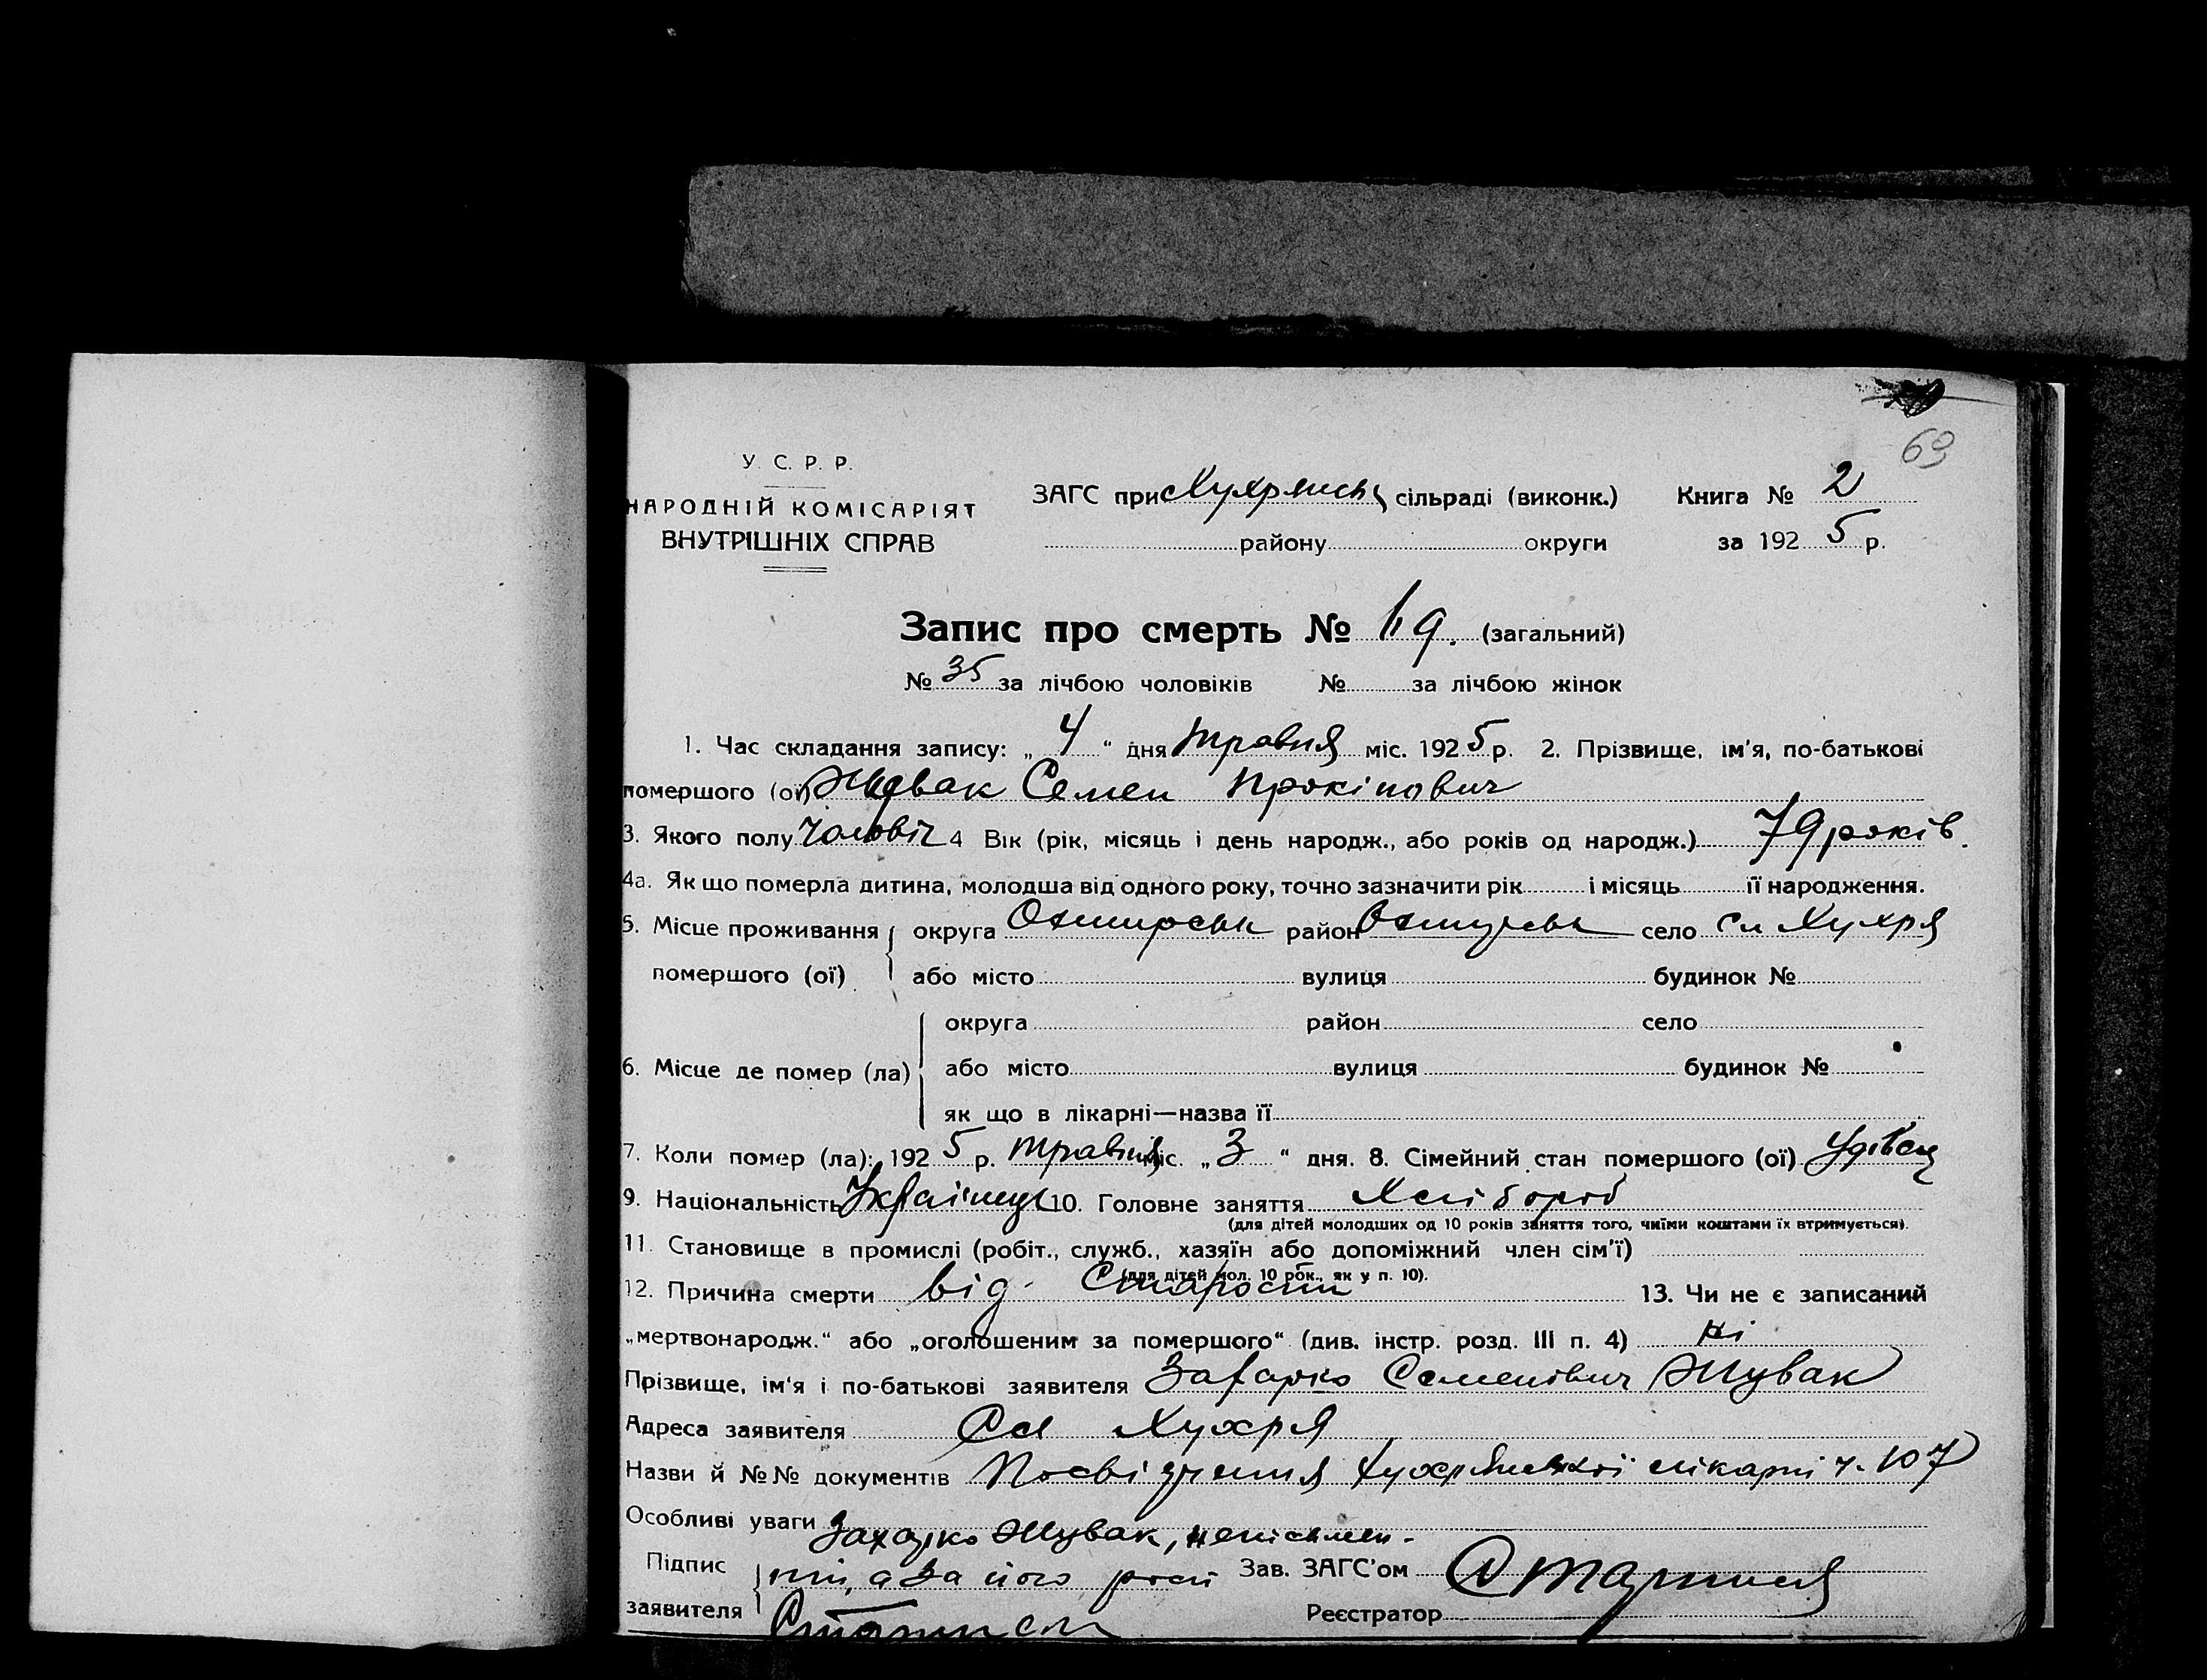 69
У. С. Р. Р.
НАРОДНІЙ КОМІСАРІЯТ
ВНУТРІШНІХ СПРАВ
ЗАГС при Хухрянськ сільраді (виконк.) Книга № 2
району округи за 1925 р.
Запис про смерть № 119. (загальний)
№ 35 за лічбою чоловіків № за лічбою жінок
1. Час складання запису: „4“ дня травня міс. 1925 р. 2. Прізвище, ім'я, по-батькові
помершого (ої) Жувак Семен Прокіпович
3. Якого полу чоловіч 4 Вік (рік, місяць і день народж., або років од народж.) 79 років.
4а. Як що померла дитина, молодша від одного року, точно зазначити рік і місяць її народження.
5. Місце проживання округа Охтирськ район Охтирськ село Сл Хухря
помершого (ої) або місто вулиця будинок №
округа район село
6. Місце де помер (ла) або місто вулиця будинок №
як що в лікарні—назва її
7. Коли помер (ла): 1925 р. травня міс. „3“ дня. 8. Сімейний стан помершого (ої) Удівец
9. Національність Українец 10. Головне заняття Хлібороб
(для дітей молодших од 10 років заняття того, чиїми коштами їх втримується).
11. Становище в промислі (робіт., служб., хазяїн або допоміжний член сім'ї)
(для дітей мол. 10 рок., як у п. 10).
12. Причина смерти від Старости 13. Чи не є записаний
„мертвонародж.“ або „оголошеним за помершого“ (див. інстр. розд. III п. 4) ні
Прізвище, ім'я і по-батькові заявителя Захарко Семенович Жувак
Адреса заявителя Сл Хухря
Назви й №№ документів Посвідчення Хухрянської лікарні ч. 107
Особливі уваги Захарко Жувак, неписьмен-
Підпис ний, а за його росп Зав. ЗАГС'ом
заявителя Реєстратор